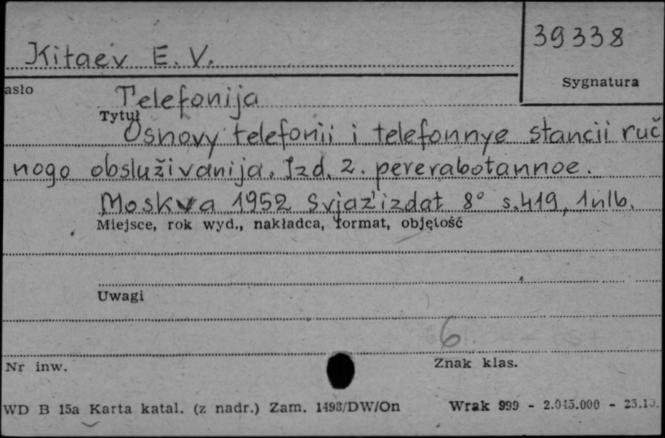 39338
Kitaev E. V.
Sygnatura
asło
Telefonija
Tytuł
Osnovy telefonii i telefonnye stancii ruč
nogo obsluživanija. Izd. 2. pererabotannoe.
Moskva 1952 Svjaz'izdat 8° s.419, 1nlb.
Miejsce, rok wyd., nakładca, format, objętość
Uwagi
6
Nr inw.
Znak klas.
WD B 15a Karta katal. (z nadr.) Zam. 1498/DW/On
Wrak 999 - 2.045.000 - 23.10.